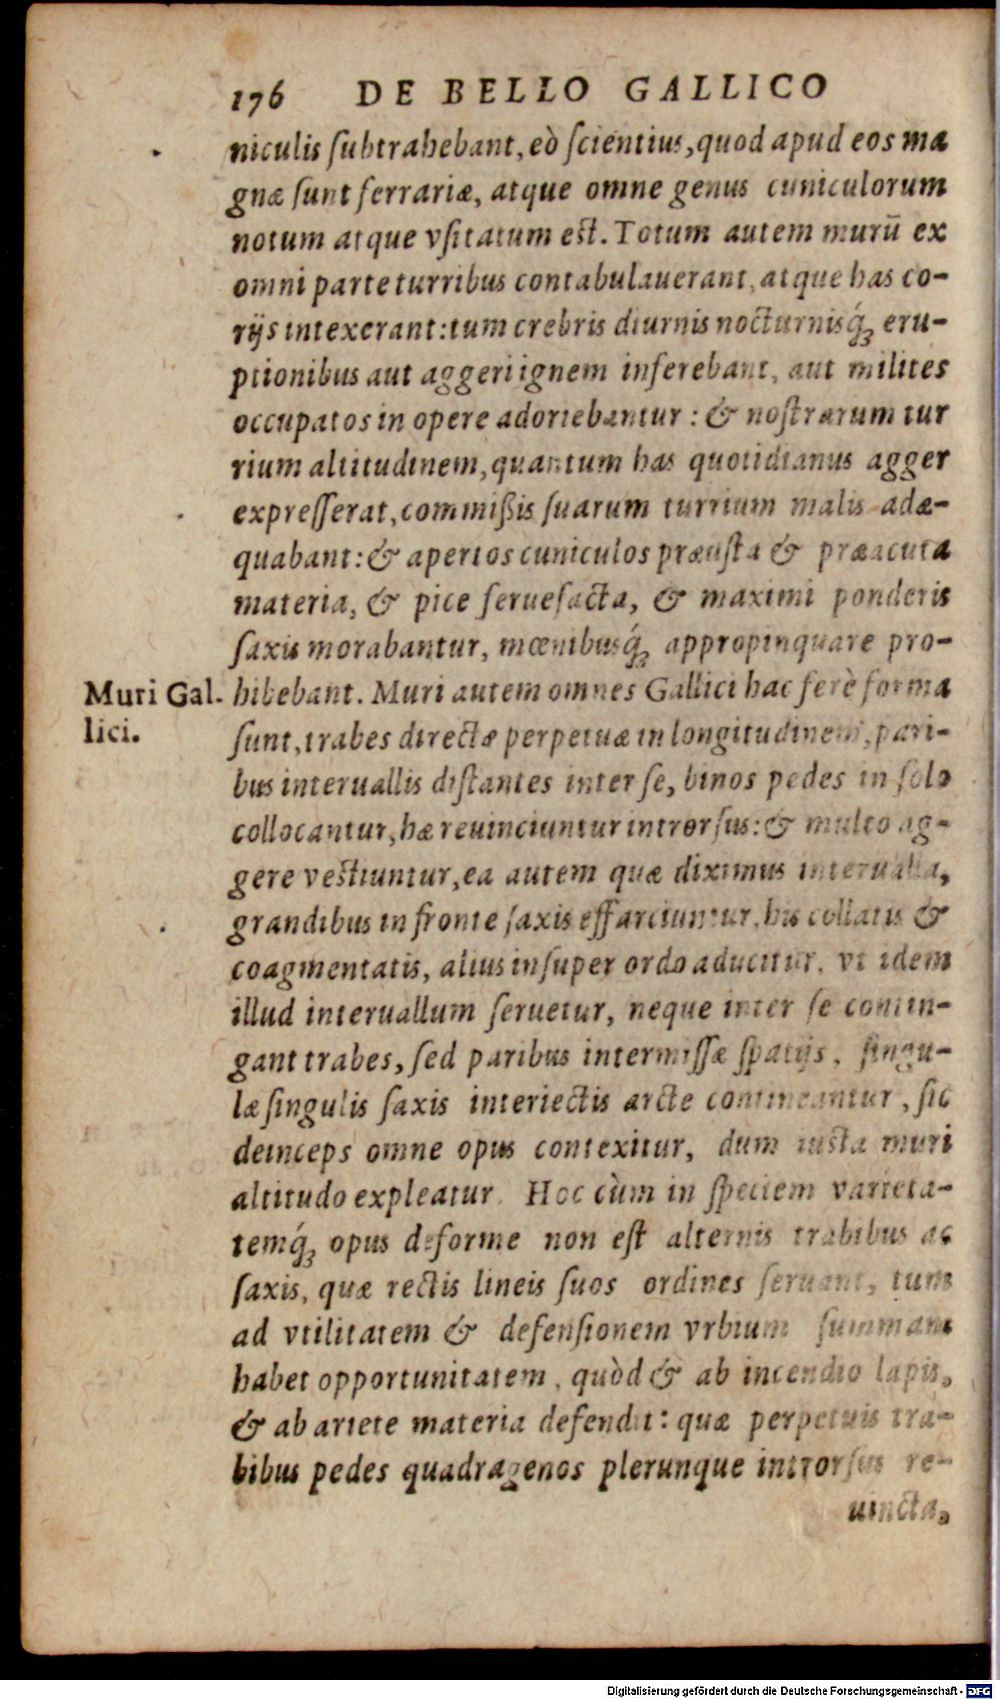 176 DE BELLO GALLICO
niculis ſubtrahebant, eò ſcientius, quod apud eos ma
gnæ ſunt ferrariæ, atque omne genus cuniculorum
notum atque vſitatum eſt. Totum autem murū ex
omni parte turribus contabulauerant, atque has co-
rijs intexerant: tum crebris diurnis nocturnisq́; eru-
ptionibus aut aggeri ignem inferebant, aut milites
occupatos in opere adoriebantur: & noſtrarum tur
rium altitudinem, quantum has quotidianus agger
expreſſerat, commißis ſuarum turrium malis adæ-
quabant: & apertos cuniculos præuſta & præacuta
materia, & pice feruefacta, & maximi ponderis
ſaxis morabantur, mœnibusq́; appropinquare pro-
Muri Gal- hibebant. Muri autem omnes Gallici hac ferè forma
lici. ſunt, trabes directæ perpetuæ in longitudinem, pari-
bus interuallis diſtantes inter ſe, binos pedes in ſolo
collocantur, hæ reuinciuntur introrſus: & multo ag-
gere veſtiuntur, ea autem quæ diximus interualla,
grandibus in fronte ſaxis effarciuntur. his collatis &
coagmentatis, alius inſuper ordo aducitur, vt idem
illud interuallum ſeruetur, neque inter ſe contin-
gant trabes, ſed paribus intermiſſæ ſpatijs, ſingu-
læ ſingulis ſaxis interiectis arcte contineantur, ſic
deinceps omne opus contexitur, dum iuſta muri
altitudo expleatur. Hoc cùm in ſpeciem varieta-
temq́; opus deforme non eſt alternis trabibus ac
ſaxis, quæ rectis lineis ſuos ordines ſeruant, tum
ad vtilitatem & defenſionem vrbium ſummam
habet opportunitatem, quòd & ab incendio lapis,
& ab ariete materia defendit: quæ perpetuis tra-
bibus pedes quadragenos plerunque introrſus re-
uincta,
Digitalisierung gefördert durch die Deutsche Forschungsgemeinschaft - DFG